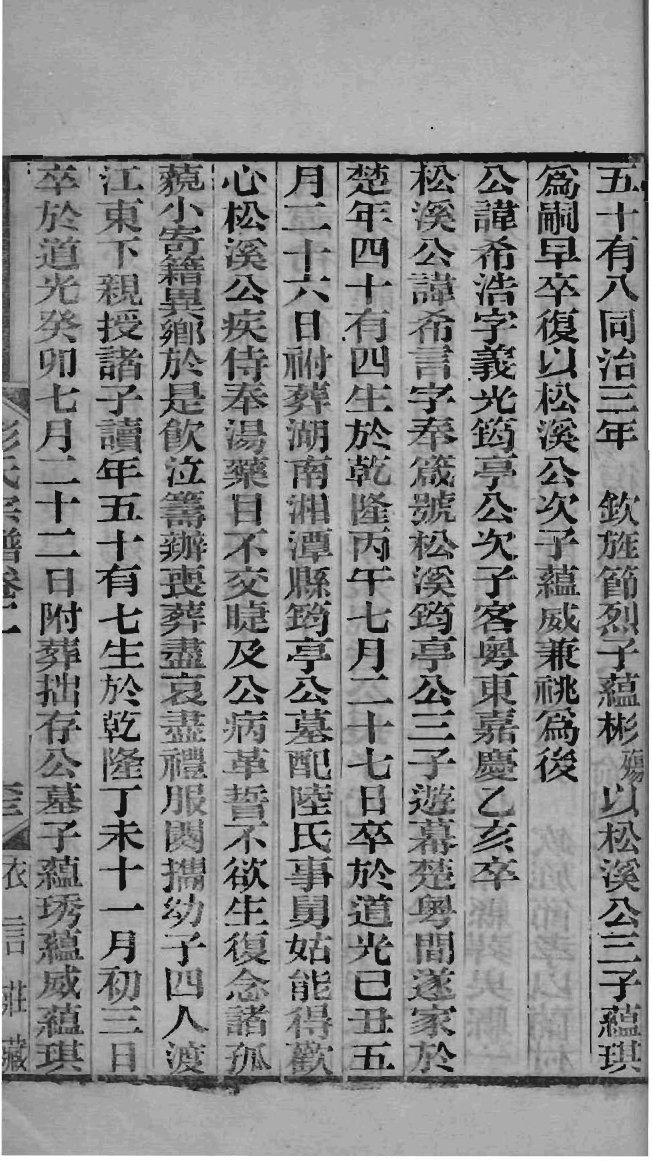 五十有八同治三年　欽旌節烈子蘊彬殤以松溪公三子蘊琪
爲嗣早卒復以松溪公次子蘊威兼祧爲後
公諱希浩字義光筠亭公次子客粵東嘉慶乙亥卒
松溪公諱希言字奉箴號松溪筠亭公三子遊幕楚粵間遂家於
楚年四十有四生於乾隆丙午七月二十七日卒於道光己丑五
月二十六日祔葬湖南湘潭縣筠亭公墓配陸氏事舅姑能得歡
心松溪公疾侍奉湯藥目不交睫及公病革誓不欲生復念諸孤
藐小寄籍異鄉於是飲泣籌辦喪葬盡哀盡禮服闋攜幼子四人渡
江東下親授諸子讀年五十有七生於乾隆丁未十一月初三日
卒於道光癸卯七月二十二日附葬拙存公墓子蘊琇蘊威蘊琪
彭氏宗譜卷二
衣言莊藏